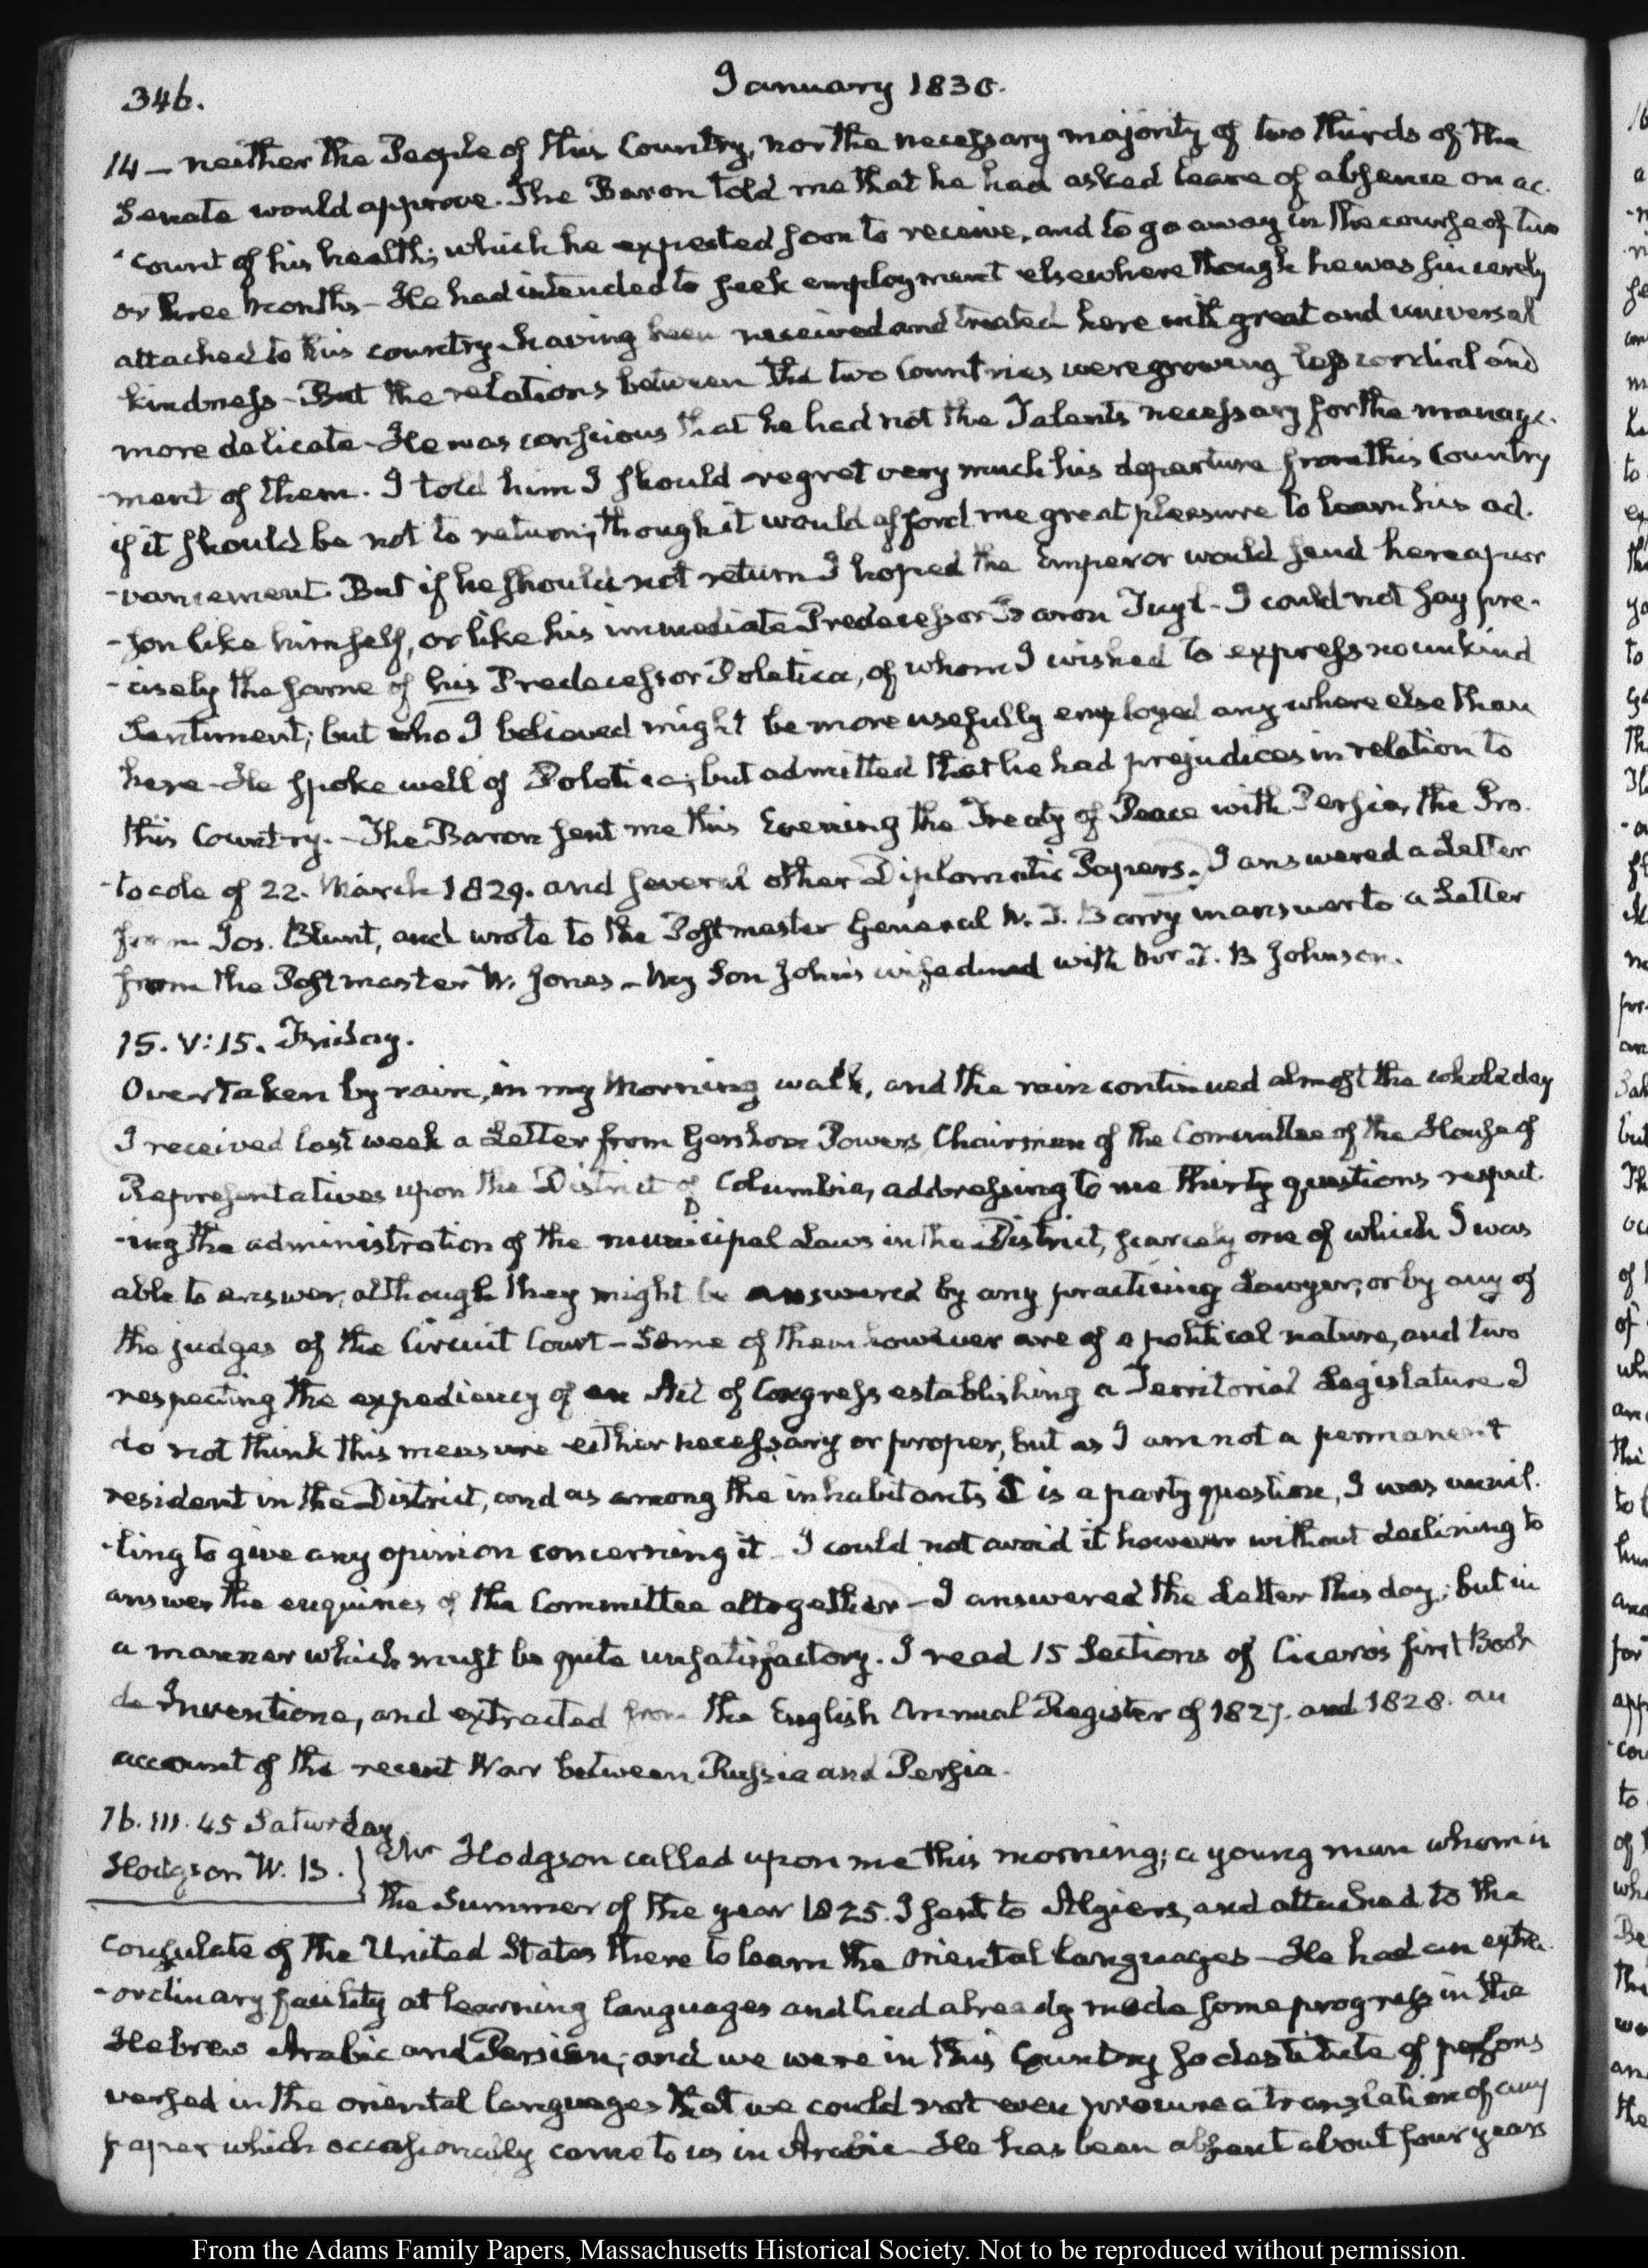 346.
January 1830.
14 — neither the People of this Country, nor the necessary majority of two thirds of the
Senate would approve. The Baron told me that he had asked leave of absence on ac-
-count of his health; which he expected soon to receive, and to go away in the course of two
or three Months — He had intended to seek employment elsewhere though he was sincerely
attached to this country having been received and treated here with great and universal
kindness — But the relations between the two Countries were growing less cordial and
more delicate — He was conscious that he had not the Talents necessary for the manage-
-ment of them. I told him I should regret very much his departure from this Country
if it should be not to return; though it would afford me great pleasure to learn his ad-
-vancement. But if he should not return I hoped the Emperor would send here a per-
-son like himself, or like his immediate Predecessor Baron Tuyl — I could not say pre-
-cisely the same of his Predecessor Poletica, of whom I wished to express no unkind
Sentiment; but who I believed might be more usefully employed any where else than
here — He spoke well of Poletica; but admitted that he had prejudices in relation to
this Country. — The Baron sent me this Evening the Treaty of Peace with Persia, the Pro-
-tocole of 22. March 1829. and several other Diplomatic Papers. I answered a Letter
from Jos. Blunt, and wrote to the Postmaster General W. T. Barry in answer to a Letter
from the Postmaster W. Jones — My Son John's wife dined with Mrs J. B Johnson.
15. V: 15. Friday.
Overtaken by rain, in my Morning walk, and the rain continued almost the whole day
I received last week a Letter from Gershom Powers, Chairman of the Committee of the House of
Representatives upon the District of Columbia, addressing to me thirty questions respect-
-ing the administration of the municipal Laws in the District, scarcely one of which I was
able to answer, although they might be answered by any practising Lawyer, or by any of
the judges of the Circuit Court — Some of them however are of a political nature, and two
respecting the expediency of an Act of Congress establishing a Territorial Legislature I
do not think this measure either necessary or proper, but as I am not a permanent
resident in the District, and as among the inhabitants it is a party question, I was unwil-
-ling to give any opinion concerning it — I could not avoid it however without declining to
answer the enquiries of the Committee altogether — I answered the Letter this day; but in
a manner which must be quite unsatisfactory. I read 15 Sections of Cicero's first Book
de Inventione, and extracted from the English Annual Register of 1827. and 1828. an
account of the recent War between Russia and Persia.
16. III. 45 Saturday.
Hodgson W. B.
Mr Hodgson called upon me this morning; a young man whom in
the Summer of the year 1825. I sent to Algiers, and attached to the
Consulate of the United States there to learn the oriental languages — He had an extra-
-ordinary facility at learning languages and had already made some progress in the
Hebrew Arabic and Persian; and we were in this Country so destitute of persons
versed in the oriental languages that we could not even procure a translation of any
paper which occasionally came to us in Arabic — He has been absent about four years
From the Adams Family Papers, Massachusetts Historical Society. Not to be reproduced without permission.